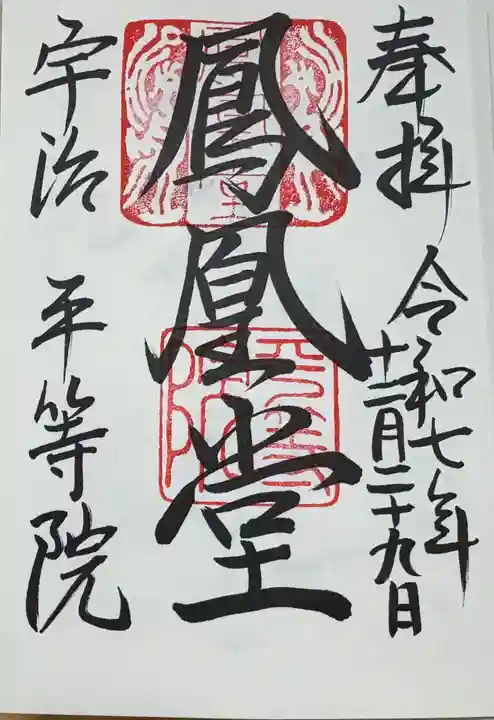 奉拝
令和七年
十二月二十九日
鳳凰堂
宇治 平等院